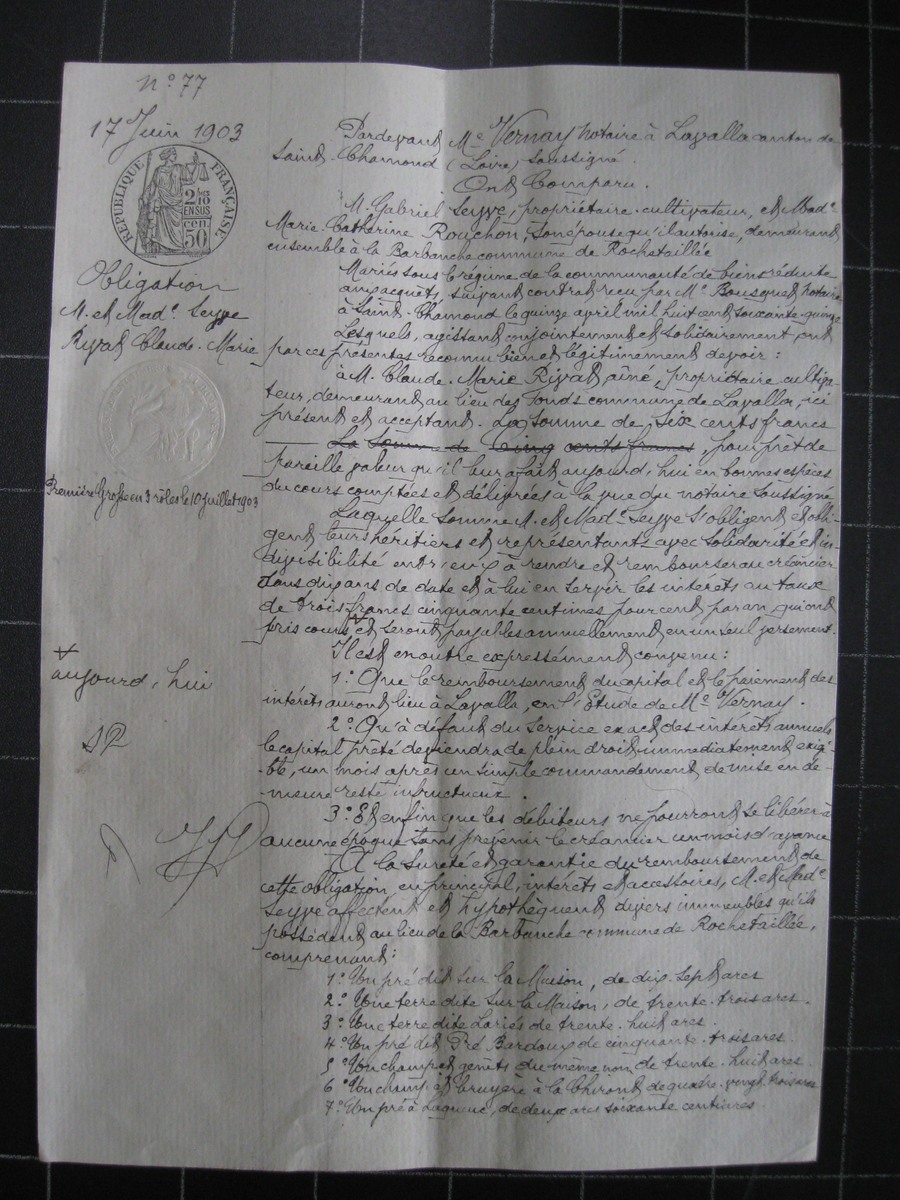 N.° 77
17 Juin 1903
RÉPUBLIQUE FRANÇAISE
2/10 EN SUS
50 cen.
Obligation
M. et Mad.e Seyve
Rivat Claude-Marie
Première Grosse en 3 rôles le 10 Juillet 1903
aujourd'hui
Pardevant Me Vernay notaire à Lavalla canton de
Saint-Chamond (Loire) soussigné.
Ont Comparu.
M. Gabriel Seyve, propriétaire-cultivateur, et Mad.e
Marie Catherine Rouchon, son épouse qu'il autorise, demeurant
ensemble à la Barbanche commune de Rochetaillée
Mariés sous le régime de la communauté de biens réduite
aux acquets, suivant contrat reçu par Me Bousquet notaire
à Saint-Chamond le quinze avril mil huit cent soixante-quinze
Lesquels, agissant conjointement et solidairement, ont
par ces présentes reconnu bien et légitimement devoir :
à M. Claude-Marie Rivat aîné, propriétaire cultiva-
teur, demeurant au lieu des Fonds commune de Lavalla, ici
présent et acceptant. La somme de Six cents francs
La Somme de Cinq cents francs, pour prêt de
pareille valeur qu'il leur a fait aujourd'hui en bonnes espèces
du cours comptées et délivrées à la vue du notaire soussigné
Laquelle somme M. et Mad.e Seyve s'obligent et obli-
gent leurs héritiers et représentants avec solidarité et in-
divisibilité entr'eux à rendre et rembourser au créancier
dans dix ans de date et à lui en servir les intérêts au taux
de trois francs cinquante centimes pour cent par an, qui ont
pris cours et seront payables annuellement en un seul versement.
Il est en outre expressément convenu :
1.° Que le remboursement du capital et le paiement des
intérêts auront lieu à Lavalla, en l'Etude de Me Vernay.
2.° Qu'à défaut du Service exact des intérêts annuels
le capital prêté deviendra de plein droit immédiatement exigi-
ble, un mois après un simple commandement de mise en de-
meure resté infructueux.
3.° Et enfin que les débiteurs ne pourront se libérer à
aucune époque sans prévenir le créancier un mois d'avance
A la sureté et garantie du remboursement de
cette obligation, en principal, intérêts et accessoires, M. et Mad.e
Seyve affectent et hypothèquent divers immeubles qu'ils
possèdent au lieu de la Barbanche commune de Rochetaillée,
comprenant :
1.° Un pré dit sur la Maison, de dix-sept ares
2.° Une terre dite sur la Maison, de trente-trois ares.
3.° Une terre dite Loriés de trente-huit ares.
4.° Un pré dit Pré Bardoux de cinquante-trois ares.
5.° Un champ et genêts du même nom de trente-huit ares.
6.° Un champ et bruyère à la Chiront de quatre-vingt-trois ares
7.° Un pré à Laqueue, de deux ares soixante centiares.